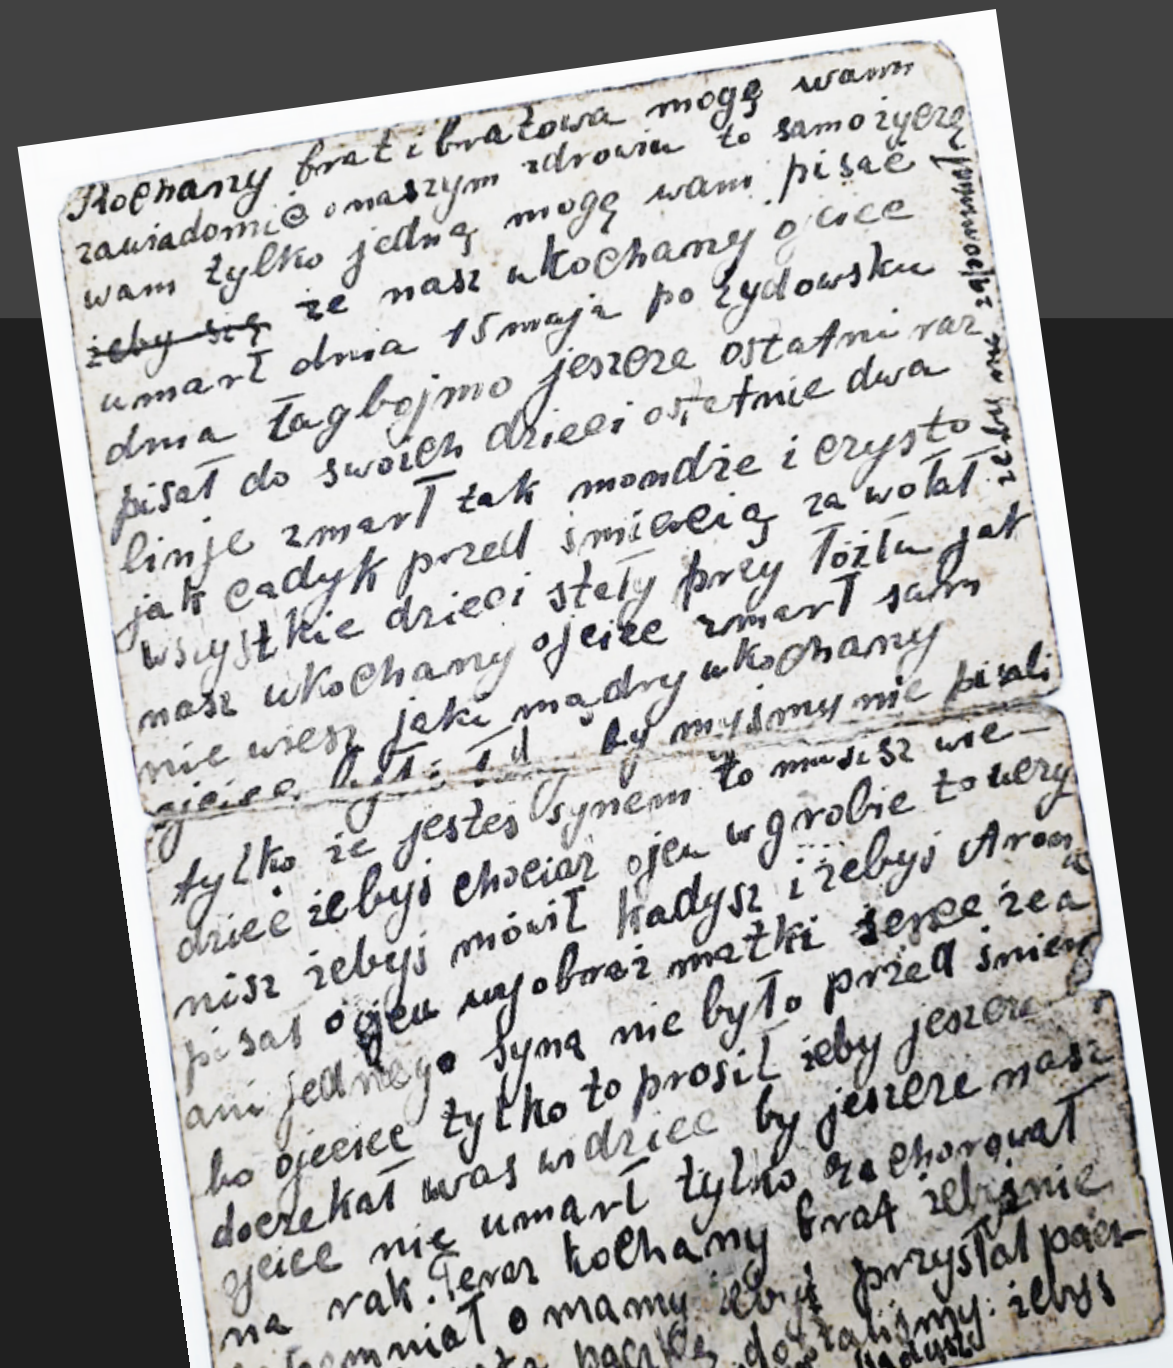 Kochany brat i bratowa mogę wam
zawiadomić o naszym zdrowiu to samo życzę
wam tylko jedną mogę wam pisać
żeby się że nasz ukochany ojciec
umarł dnia 15 maja po żydowsku
dnia łagbojmo jeszcze ostatni raz
pisał do swoich dzieci ostatnie dwa
linje zmarł tak mondże i czysto
jak cadyk przed śmiercią zawołał
wszystkie dzieci stały przy łóżku jak
nasz ukochany ojciec zmarł sam
nie wiesz jaki mądry ukochany
ojciec by myśmy nie pisali
tylko że jesteś synem to musisz wie-
dzieć żebyś chociaż ojcu w grobie to uczy
nisz żebyś mówił kadysz i żebyś Aron
pisał ojcu wyobraź matki serce że a
ani jednego syna nie było przed śmier
bo ojciec tylko to prosił żeby jeszcze
doczekał was widzieć by jeszcze nasz
ojciec nie umarł tylko zachorował
na rak. Teraz kochany brat żebyś nie
o mamy żebyś przysłał pacz-
żebyś